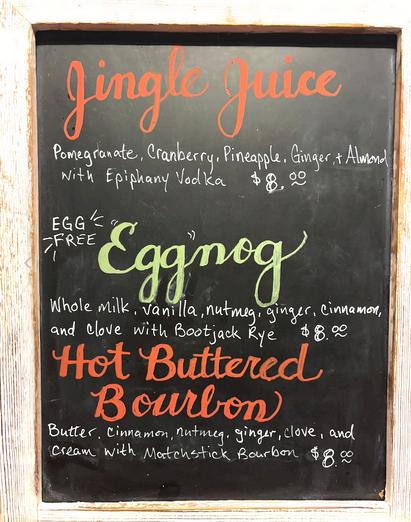 Jingle Juice
Pomegranate, Cranberry, Pineapple, Ginger, + Almond
with Epiphany Vodka $8.00
EGG
FREE
"Egg"nog
Whole milk, vanilla, nutmeg, ginger, cinnamon,
and clove with Bootjack Rye $8.00
Hot Buttered
Bourbon
Butter, cinnamon, nutmeg, ginger, clove, and
cream with Matchstick Bourbon $8.00